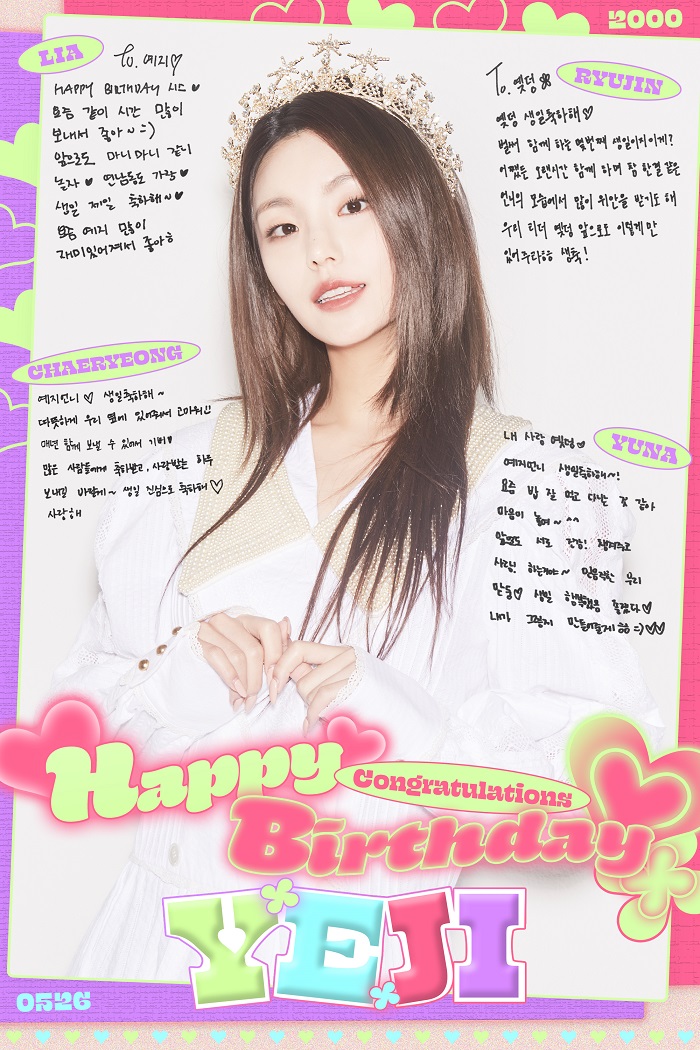 2000
LIA
To. 예지♡
HAPPY BIRTHDAY 시드♥
요즘 같이 시간 많이
보내서 좋아~=)
앞으로도 마니마니 같이
놀자♥ 연남동도 가랑♥
생일 제일 축하해~♥
요즘 예지 많이
재미있어져서 좋아ㅎ
To. 옛덩
RYUJIN
옛덩 생일축하해♡
벌써 함께 하는 몇번째 생일이지이게?
어쨌든 오랜시간 함께 하며 참 한결 같은
언니의 모습에서 많이 위안을 받기도 해
우리 리더 옛덩 앞으로도 이렇게만
있어주라ㅎㅎ 생축!
CHAERYEONG
예지언니 ♡ 생일축하해~
따뜻하게 우리 옆에 있어줘서 고마워!!
매년 함께 보낼 수 있어서 기뻐♥
많은 사람들에게 축하받고, 사랑받는 하루
보내길 바랄게~ 생일 진심으로 축하해♡
사랑해
내 사랑 옛덩♡
YUNA
예지언니 생일축하해~!
요즘 밥 잘 먹고 다니는 것 같아
마음이 놓여~ ^^
앞으로도 서로 챙겨주고
사랑! 하는거야~ 우리
만들♡ 생일 행복했음 좋겠다♡
내가 그렇게 만들어줄게 ㅎㅎ =)♡♡
Happy
Congratulations
Birthday
YEJI
0526